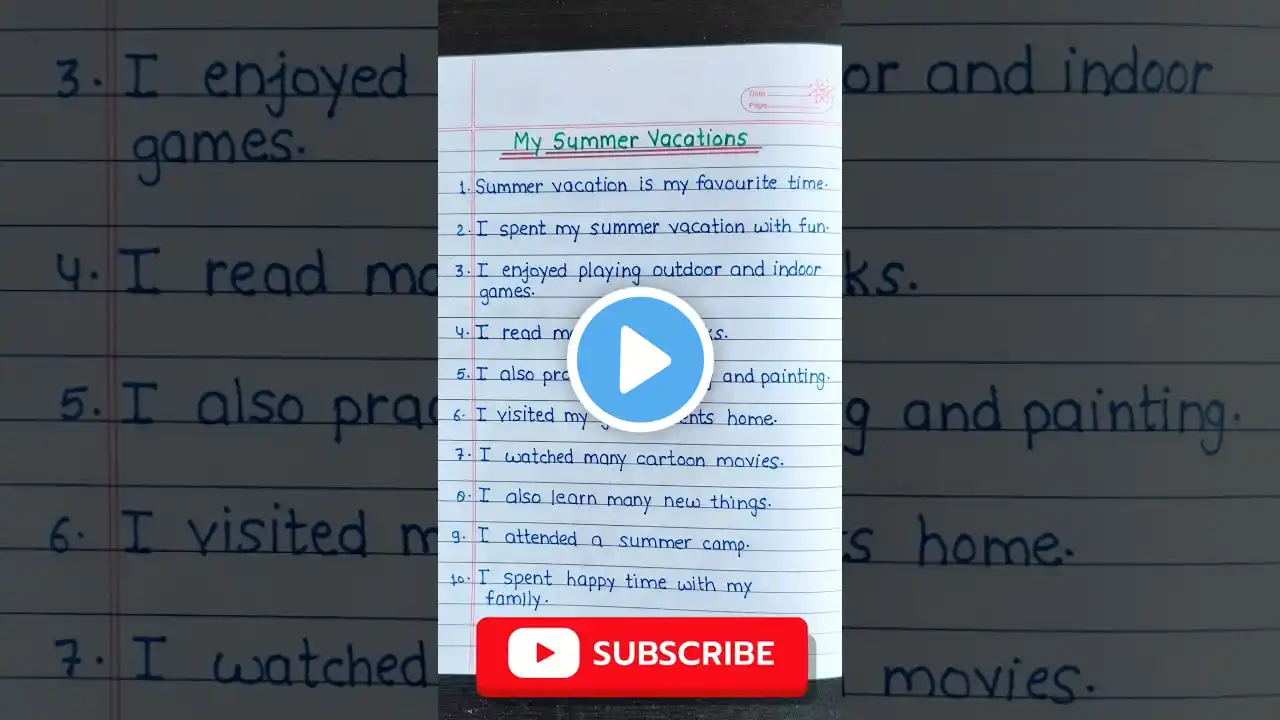 Date
Page
My Summer Vacations
1. Summer vacation is my favourite time.
2. I spent my summer vacation with fun.
3. I enjoyed playing outdoor and indoor
games.
4. I read
5. I also and painting.
6. I visited my home.
7. I watched many cartoon movies.
8. I also learn many new things.
9. I attended a summer camp.
10. I spent happy time with my
family.
SUBSCRIBE
3. I enjoyed and indoor
games.
4. I read
5. I also and painting.
6. I visited home.
7. I watched movies.